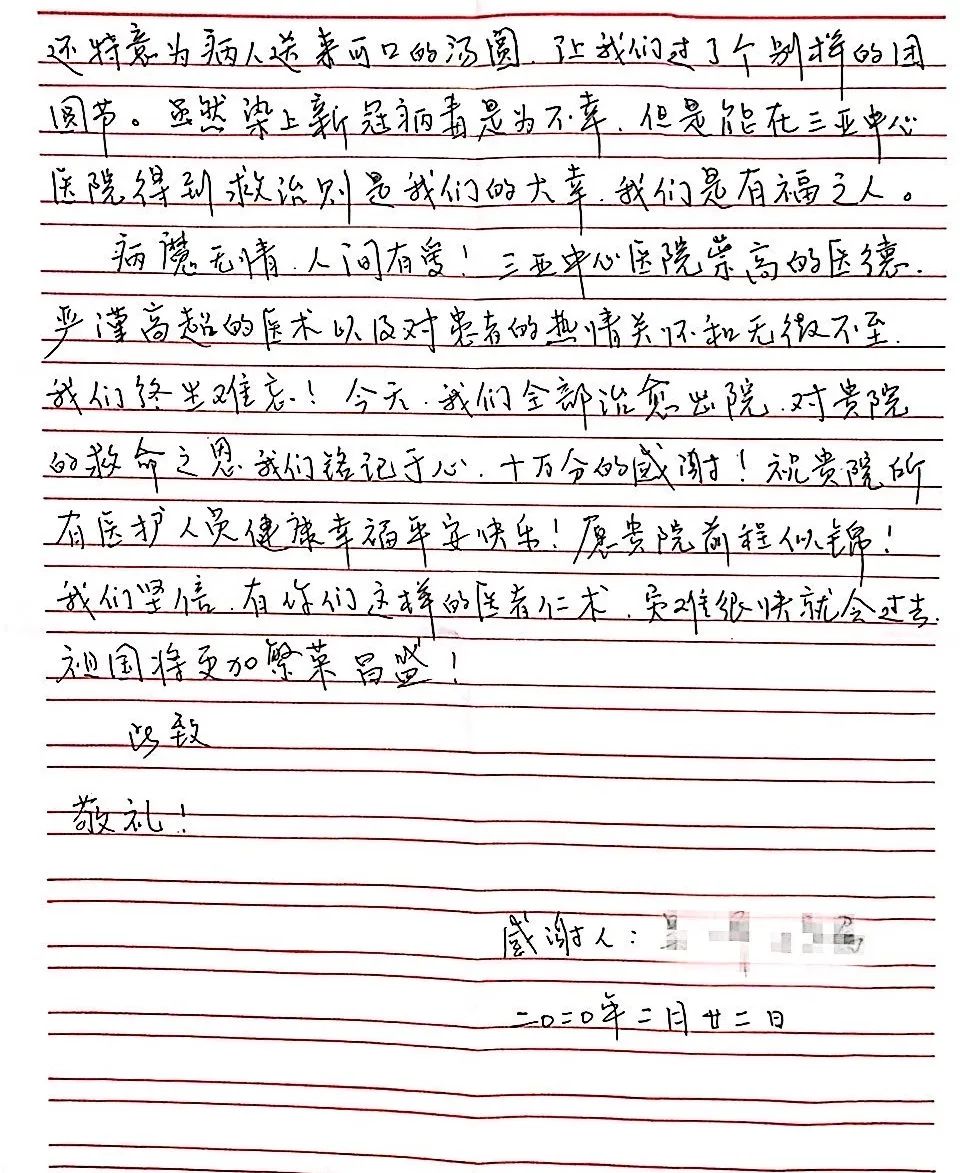 还特意为病人送来可口的汤圆，让我们过了个别样的团
圆节。虽然染上新冠病毒是为不幸，但是能在三亚中心
医院得到救治则是我们的大幸，我们是有福之人。
病魔无情，人间有爱！三亚中心医院崇高的医德，
严谨高超的医术以及对患者的热情关怀和无微不至，
我们终生难忘！今天，我们全部治愈出院，对贵院
的救命之恩我们铭记于心，十万分的感谢！祝贵院所
有医护人员健康幸福平安快乐！愿贵院前程似锦！
我们坚信，有你们这样的医者仁术，灾难很快就会过去，
祖国将更加繁荣昌盛！
此致
敬礼！
感谢人：
二〇二〇年二月廿二日